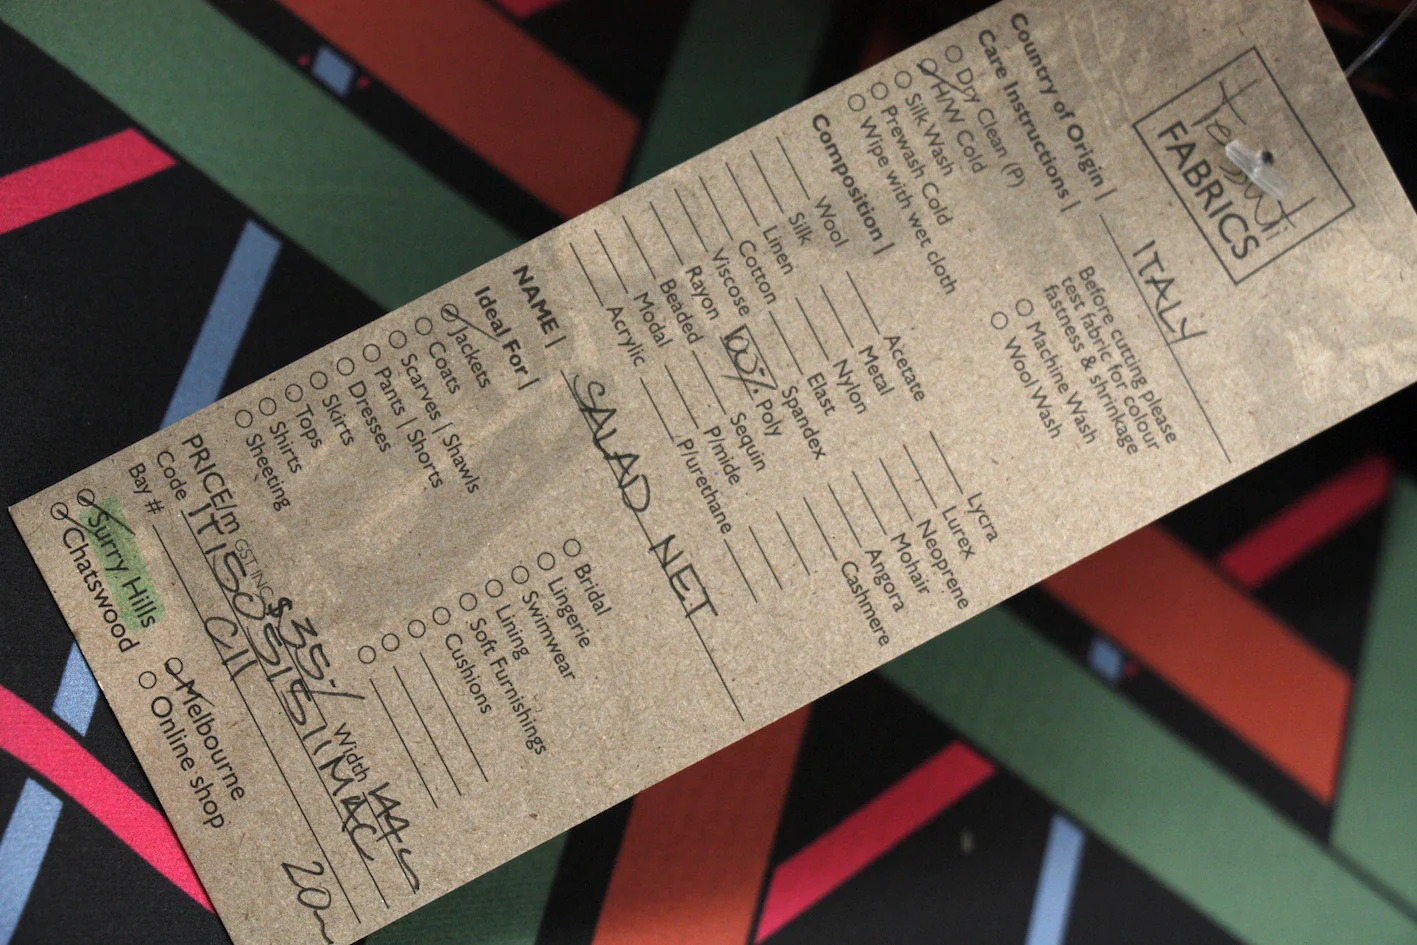 Tessuti
FABRICS
Country of Origin | ITALY
Care Instructions |
Dry Clean (P)
H/W Cold
Silk Wash
Prewash Cold
Wipe with wet cloth
Before cutting please
test fabric for colour
fastness & shrinkage
Machine Wash
Wool Wash
Composition |
Wool
Silk
Linen
Cotton
Viscose
Rayon
Beaded
Modal
Acrylic
Acetate
Metal
Nylon
Elast
Spandex
100% Poly
Sequin
P/mide
P/urethane
Lycra
Lurex
Neoprene
Mohair
Angora
Cashmere
NAME | SALAD NET
Ideal For |
Jackets
Coats
Scarves | Shawls
Pants | Shorts
Dresses
Skirts
Tops
Shirts
Sheeting
Bridal
Lingerie
Swimwear
Lining
Soft Furnishings
Cushions
PRICE/m GST INC $35.- Width 144c
Code IT15051511MAC
Bay # C11 20m
Surry Hills
Chatswood
Melbourne
Online shop